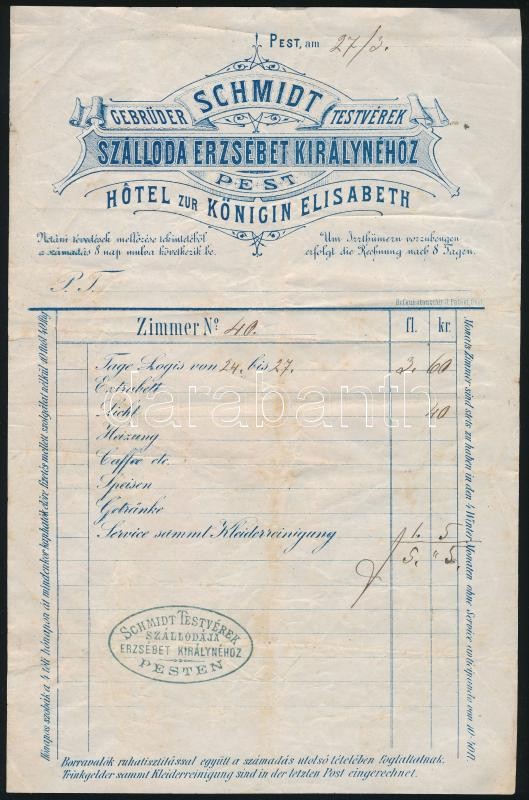 PEST, am 27/3.
GEBRÜDER SCHMIDT TESTVÉREK
SZÁLLODA ERZSÉBET KIRÁLYNÉHÖZ
PEST
HÔTEL ZUR KÖNIGIN ELISABETH
Netáni tévedések mellőzése tekintetéből Um Irrthümern vorzubeugen
a számadás 8 nap mulva következik be. erfolgt die Rechnung nach 8 Tagen.
P. T.
Zimmer No 40. fl. kr.
Tage Logis von 24. bis 27. 3. 60
Extrabett
Licht 40
Heizung
Caffee etc.
Speisen
Getränke
Service sammt Kleiderreinigung 1. 5
5. " 5.
darabanth
SCHMIDT TESTVÉREK
SZÁLLODÁJA
ERZSÉBET KIRÁLYNÉHOZ
PESTEN
Hónapos szobák a 4 téli hónapon át mindenkor kaphatók előre fizetés mellett szolgálat nélkül
Monats Zimmer sind stets zu haben in den 4 Winter Monaten ohne Service anticipando von
Borravalók ruhatisztitással együtt a számadás utolsó tételében foglaltatnak.
Trinkgelder sammt Kleiderreinigung sind in der letzten Post eingerechnet.